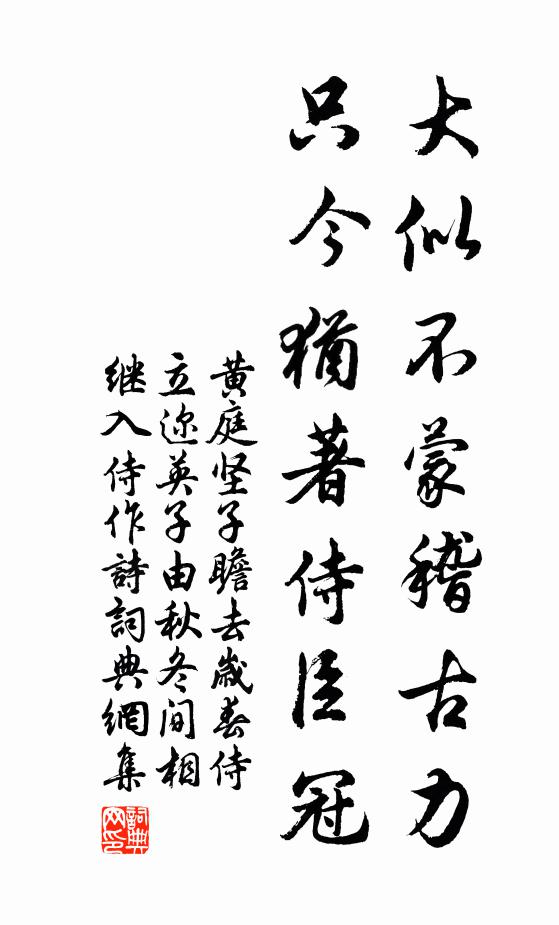 大似不蒙稽古力
只今猶著侍臣冠
黃庭坚子瞻去歲春侍
立迩英子由秋冬间相
继入侍作詩詞典網集
詞典
网印